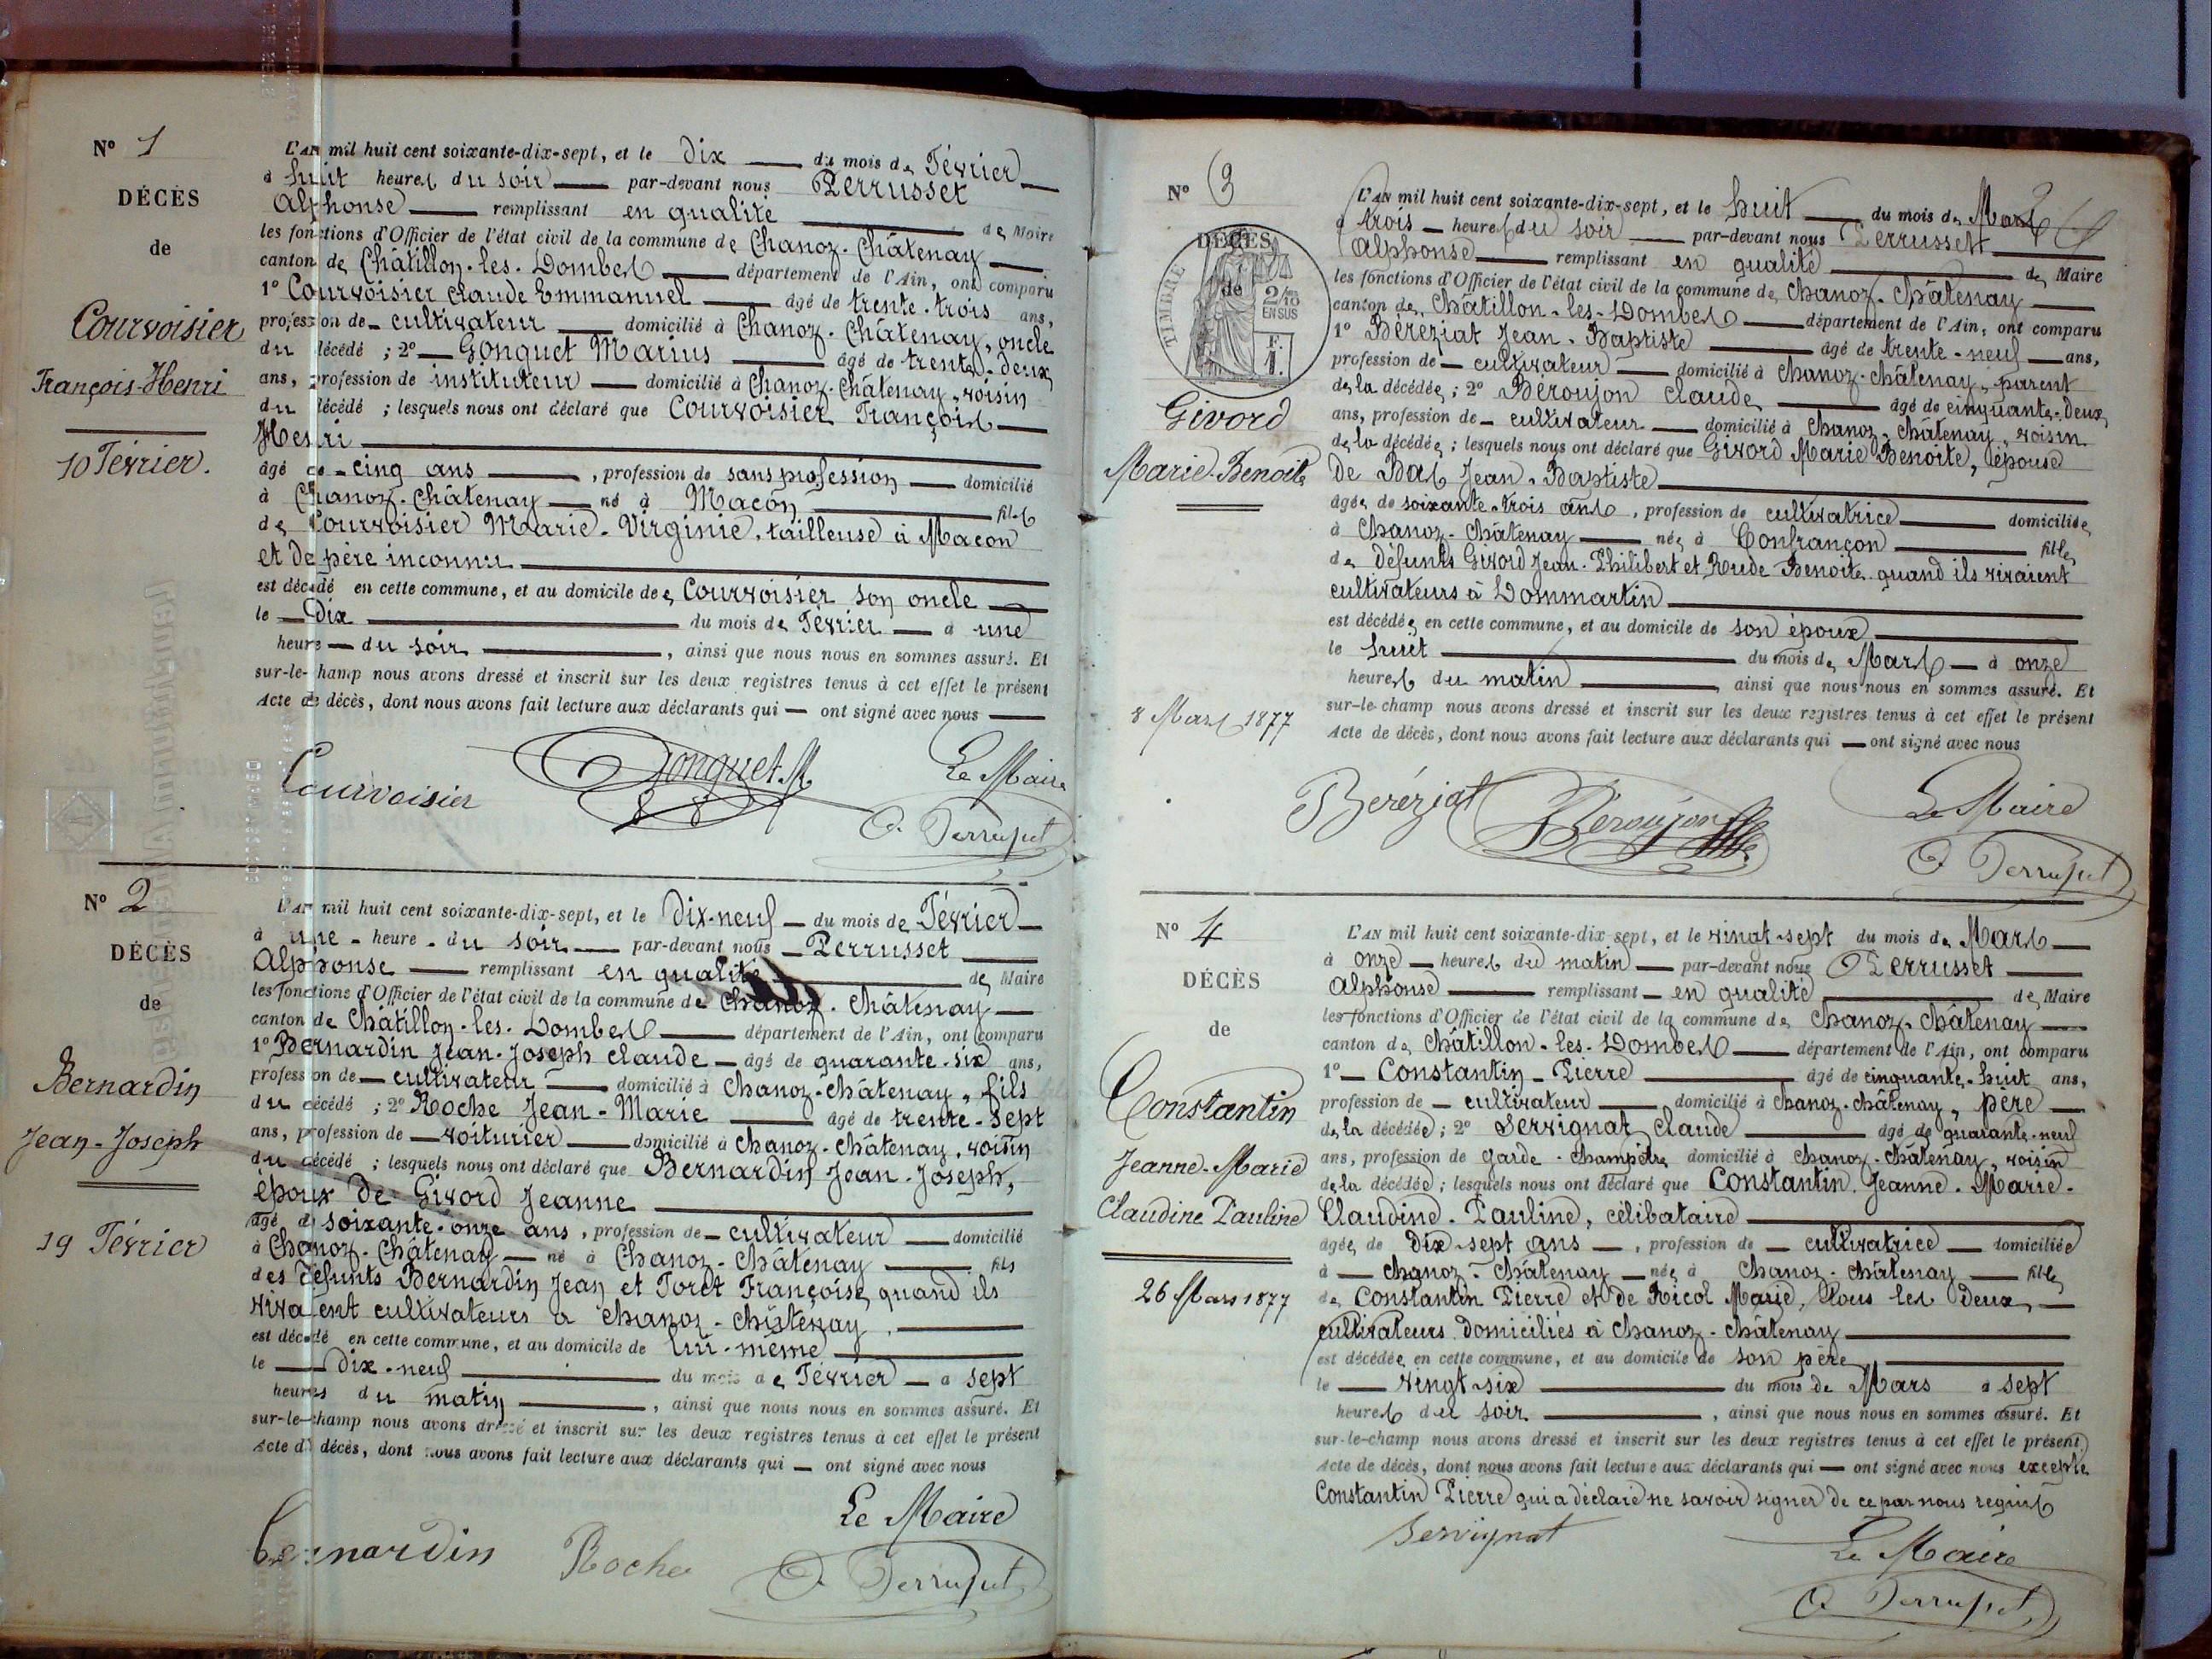 N° 1
DÉCÈS
de
Courvoisier
François-Henri
10 Février.
L'AN mil huit cent soixante-dix-sept, et le dix du mois de Février
à huit heures du soir par-devant nous Perrusset
Alphonse remplissant en qualité de Maire
les fonctions d'Officier de l'état civil de la commune de Chanoz-Châtenay
canton de Châtillon-les-Dombes département de l'Ain, ont comparu
1° Courvoisier Claude Emmanuel âgé de trente-trois ans,
profession de cultivateur domicilié à Chanoz-Châtenay, oncle
du décédé ; 2° Gonguet Marius âgé de trente-deux
ans, profession de instituteur domicilié à Chanoz-Châtenay, voisin
du décédé ; lesquels nous ont déclaré que Courvoisier François
Henri
âgé de cinq ans, profession de sans profession domicilié
à Chanoz-Châtenay né à Macon fils
de Courvoisier Marie-Virginie, tailleuse à Macon
et de père inconnu
est décédé en cette commune, et au domicile de Courvoisier son oncle
le dix du mois de Février à une
heure du soir, ainsi que nous nous en sommes assuré. Et
sur-le-champ nous avons dressé et inscrit sur les deux registres tenus à cet effet le présent
Acte de décès, dont nous avons fait lecture aux déclarants qui ont signé avec nous
Courvoisier Gonguet M. Le Maire
A. Perrusset
N° 2
DÉCÈS
de
Bernardin
Jean-Joseph
19 Février
L'AN mil huit cent soixante-dix-sept, et le dix-neuf du mois de Février
à une heure du soir par-devant nous Perrusset
Alphonse remplissant en qualité de Maire
les fonctions d'Officier de l'état civil de la commune de Chanoz-Châtenay
canton de Châtillon-les-Dombes département de l'Ain, ont comparu
1° Bernardin Jean-Joseph Claude âgé de quarante-six ans,
profession de cultivateur domicilié à Chanoz-Châtenay, fils
du décédé ; 2° Roche Jean-Marie âgé de trente-sept
ans, profession de voiturier domicilié à Chanoz-Châtenay, voisin
du décédé ; lesquels nous ont déclaré que Bernardin Jean-Joseph,
époux de Givord Jeanne
âgé de soixante-onze ans, profession de cultivateur domicilié
à Chanoz-Châtenay né à Chanoz-Châtenay fils
des défunts Bernardin Jean et Foret Françoise, quand ils
vivaient cultivateurs à Chanoz-Châtenay.
est décédé en cette commune, et au domicile de lui-même
le dix-neuf du mois de Février à sept
heures du matin, ainsi que nous nous en sommes assuré. Et
sur-le-champ nous avons dressé et inscrit sur les deux registres tenus à cet effet le présent
Acte de décès, dont nous avons fait lecture aux déclarants qui ont signé avec nous
Le Maire
Bernardin Roche A. Perrusset
N° 3
DÉCÈS
de
TIMBRE
2/10 EN SUS
F. 1.
Givord
Marie-Benoite
8 Mars 1877
L'AN mil huit cent soixante-dix-sept, et le huit du mois de Mars
à trois heures du soir par-devant nous Perrusset
Alphonse remplissant en qualité de Maire
les fonctions d'Officier de l'état civil de la commune de Chanoz-Châtenay
canton de Châtillon-les-Dombes département de l'Ain, ont comparu
1° Béréziat Jean-Baptiste âgé de trente-neuf ans,
profession de cultivateur domicilié à Chanoz-Châtenay, parent
de la décédée ; 2° Béroujon Claude âgé de cinquante-deux
ans, profession de cultivateur domicilié à Chanoz-Châtenay, voisin
de la décédée ; lesquels nous ont déclaré que Givord Marie Benoite, épouse
de Bas Jean-Baptiste
âgée de soixante-trois ans, profession de cultivatrice domiciliée
à Chanoz-Châtenay née à Confrançon fille
de défunts Givord Jean-Philibert et Rude Benoite quand ils vivaient
cultivateurs à Dommartin
est décédée en cette commune, et au domicile de son époux
le huit du mois de Mars à onze
heures du matin, ainsi que nous nous en sommes assuré. Et
sur-le-champ nous avons dressé et inscrit sur les deux registres tenus à cet effet le présent
Acte de décès, dont nous avons fait lecture aux déclarants qui ont signé avec nous
Béréziat Béroujon Le Maire
A. Perrusset
N° 4
DÉCÈS
de
Constantin
Jeanne-Marie
Claudine Pauline
26 Mars 1877
L'AN mil huit cent soixante-dix-sept, et le vingt-sept du mois de Mars
à onze heures du matin par-devant nous Perrusset
Alphonse remplissant en qualité de Maire
les fonctions d'Officier de l'état civil de la commune de Chanoz-Châtenay
canton de Châtillon-les-Dombes département de l'Ain, ont comparu
1° Constantin Pierre âgé de cinquante-huit ans,
profession de cultivateur domicilié à Chanoz-Châtenay, père
de la décédée ; 2° Servignat Claude âgé de quarante-neuf
ans, profession de garde-champêtre domicilié à Chanoz-Châtenay, voisin
de la décédée ; lesquels nous ont déclaré que Constantin Jeanne-Marie-
Claudine-Pauline, célibataire
âgée de dix-sept ans, profession de cultivatrice domiciliée
à Chanoz-Châtenay née à Chanoz-Châtenay fille
de Constantin Pierre et de Nicol Marie, tous les deux
cultivateurs domiciliés à Chanoz-Châtenay
est décédée en cette commune, et au domicile de son père
le vingt-six du mois de Mars à sept
heures du soir, ainsi que nous nous en sommes assuré. Et
sur-le-champ nous avons dressé et inscrit sur les deux registres tenus à cet effet le présent
Acte de décès, dont nous avons fait lecture aux déclarants qui ont signé avec nous excepté
Constantin Pierre qui a déclaré ne savoir signer de ce par nous requis
Servignat Le Maire
A. Perrusset